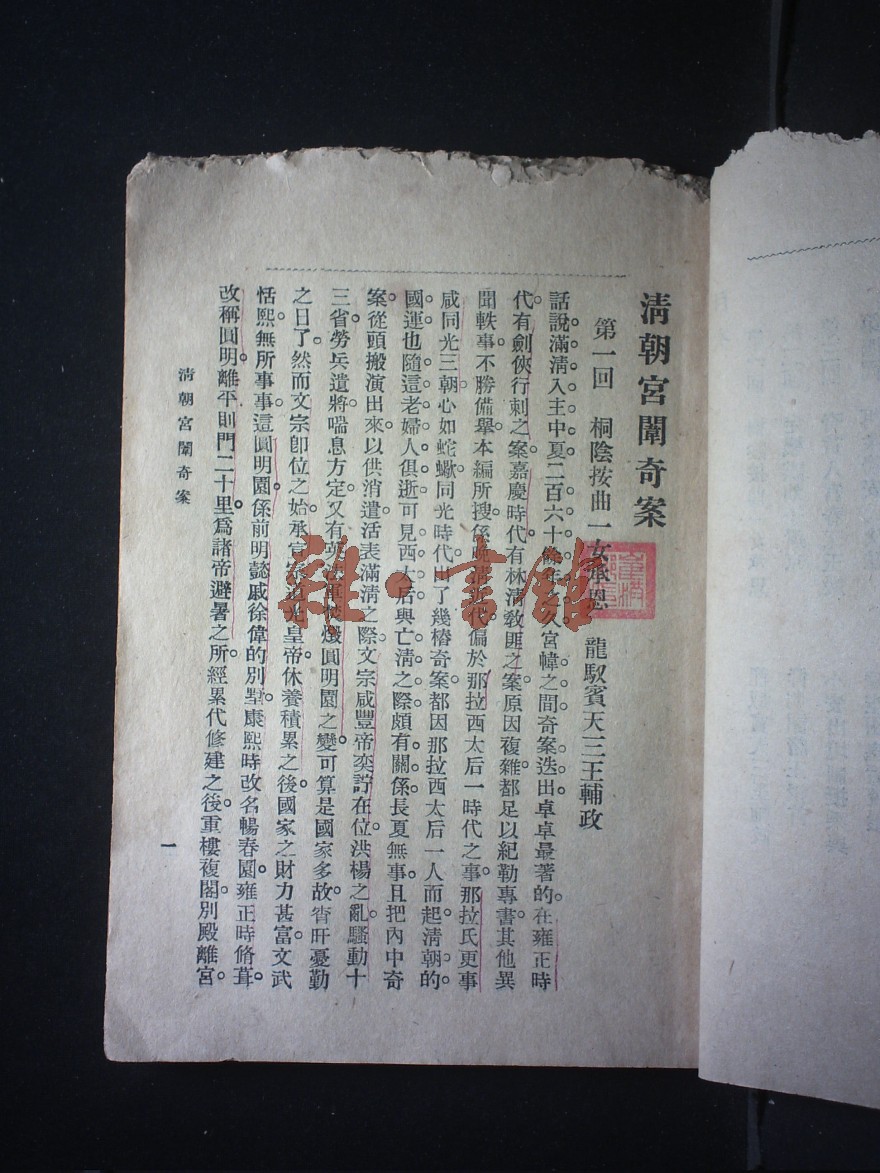 清朝宮闈奇案
第一回　桐陰按曲一女承恩　龍馭賓天三王輔政
話說滿清入主中夏。二百六十餘年之久。宮幃之間。奇案迭出。卓卓最著的。在雍正時
代。有劍俠行刺之案。嘉慶時代。有林淸敎匪之案。原因複雜。都足以紀勒專書。其他異
聞軼事。不勝備舉。本編所搜。係晚淸近代。偏於那拉西太后一時代之事。那拉氏更事
咸同光三朝。心如蛇蠍。同光時代。出了幾樁奇案。都因那拉西太后一人而起。淸朝的
國運也隨這老婦人俱逝。可見西太后與亡淸之際。頗有關係。長夏無事。且把內中奇
案。從頭搬演出來。以供消遣。活表滿淸之際。文宗咸豐帝奕詝在位。洪楊之亂。騷動十
三省。勞兵遣將。喘息方定。又有英法軍焚燬圓明園之變。可算是國家多故。宵旰憂勤
之日了。然而文宗卽位之始。承宣宗道光皇帝休養積累之後。國家之財力甚富。文武
恬熙。無所事事。這圓明園係前明懿戚徐偉的別墅。康熙時改名暢春園。雍正時脩葺。
改稱圓明。離平則門二十里。爲諸帝避暑之所。經累代修建之後。重樓複閣。別殿離宮。
淸朝宮闈奇案
一
雜·書館